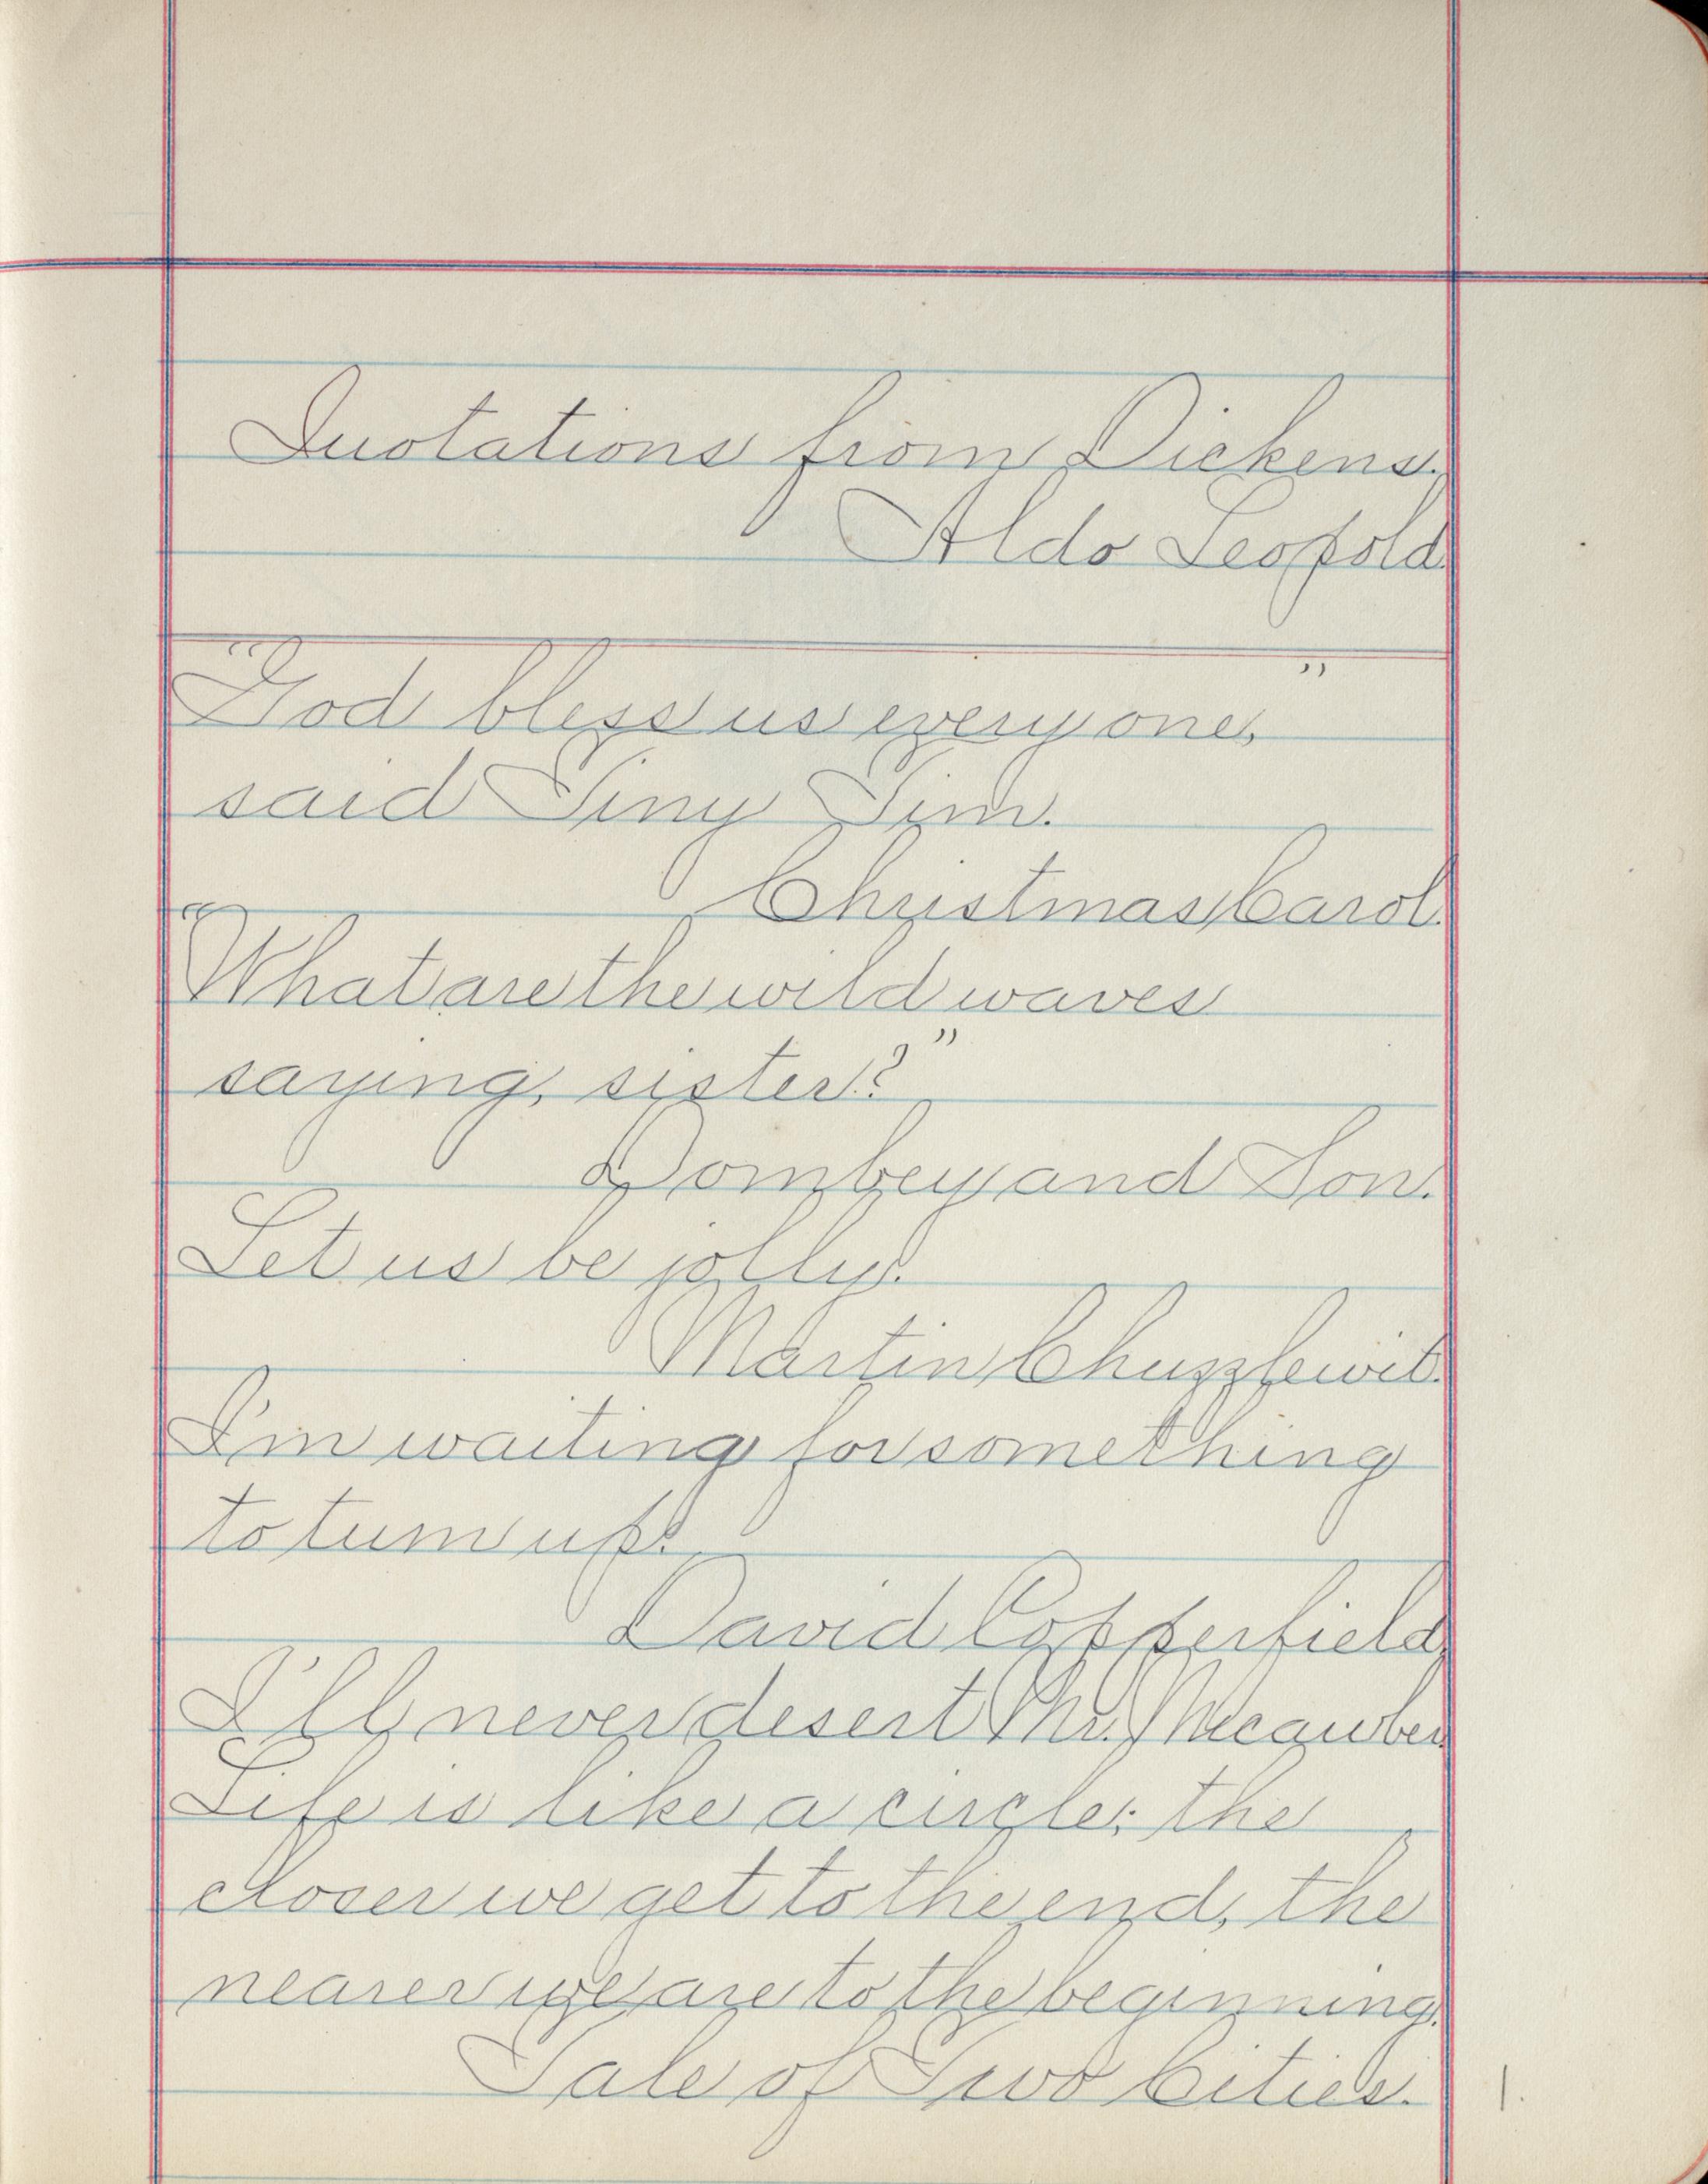 Quotations from Dickens.
Aldo Leopold.
"God bless us every one,"
said Tiny Tim.
Christmas Carol.
"What are the wild waves
saying, sister?"
Dombey and Son.
Let us be jolly!
Martin Chuzzlewit.
I'm waiting for something
to turn up!
David Copperfield.
I'll never desert Mr. Micawber
Life is like a circle; the
closer we get to the end, the
nearer we are to the beginning.
Tale of Two Cities.
1.